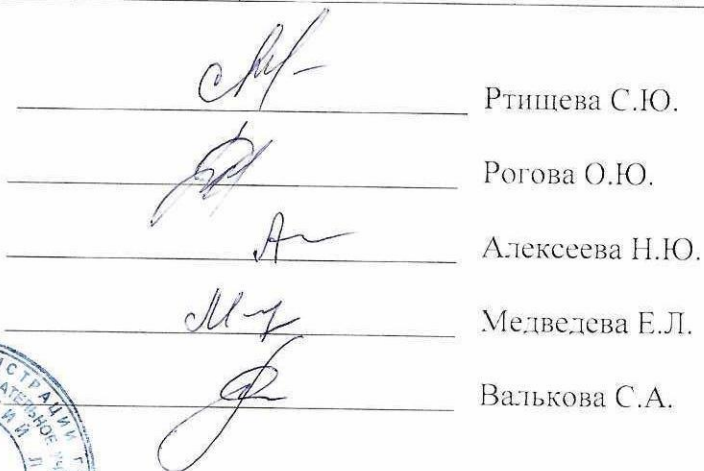 Ртищева С.Ю.
Рогова О.Ю.
Алексеева Н.Ю.
Медведева Е.Л.
Валькова С.А.